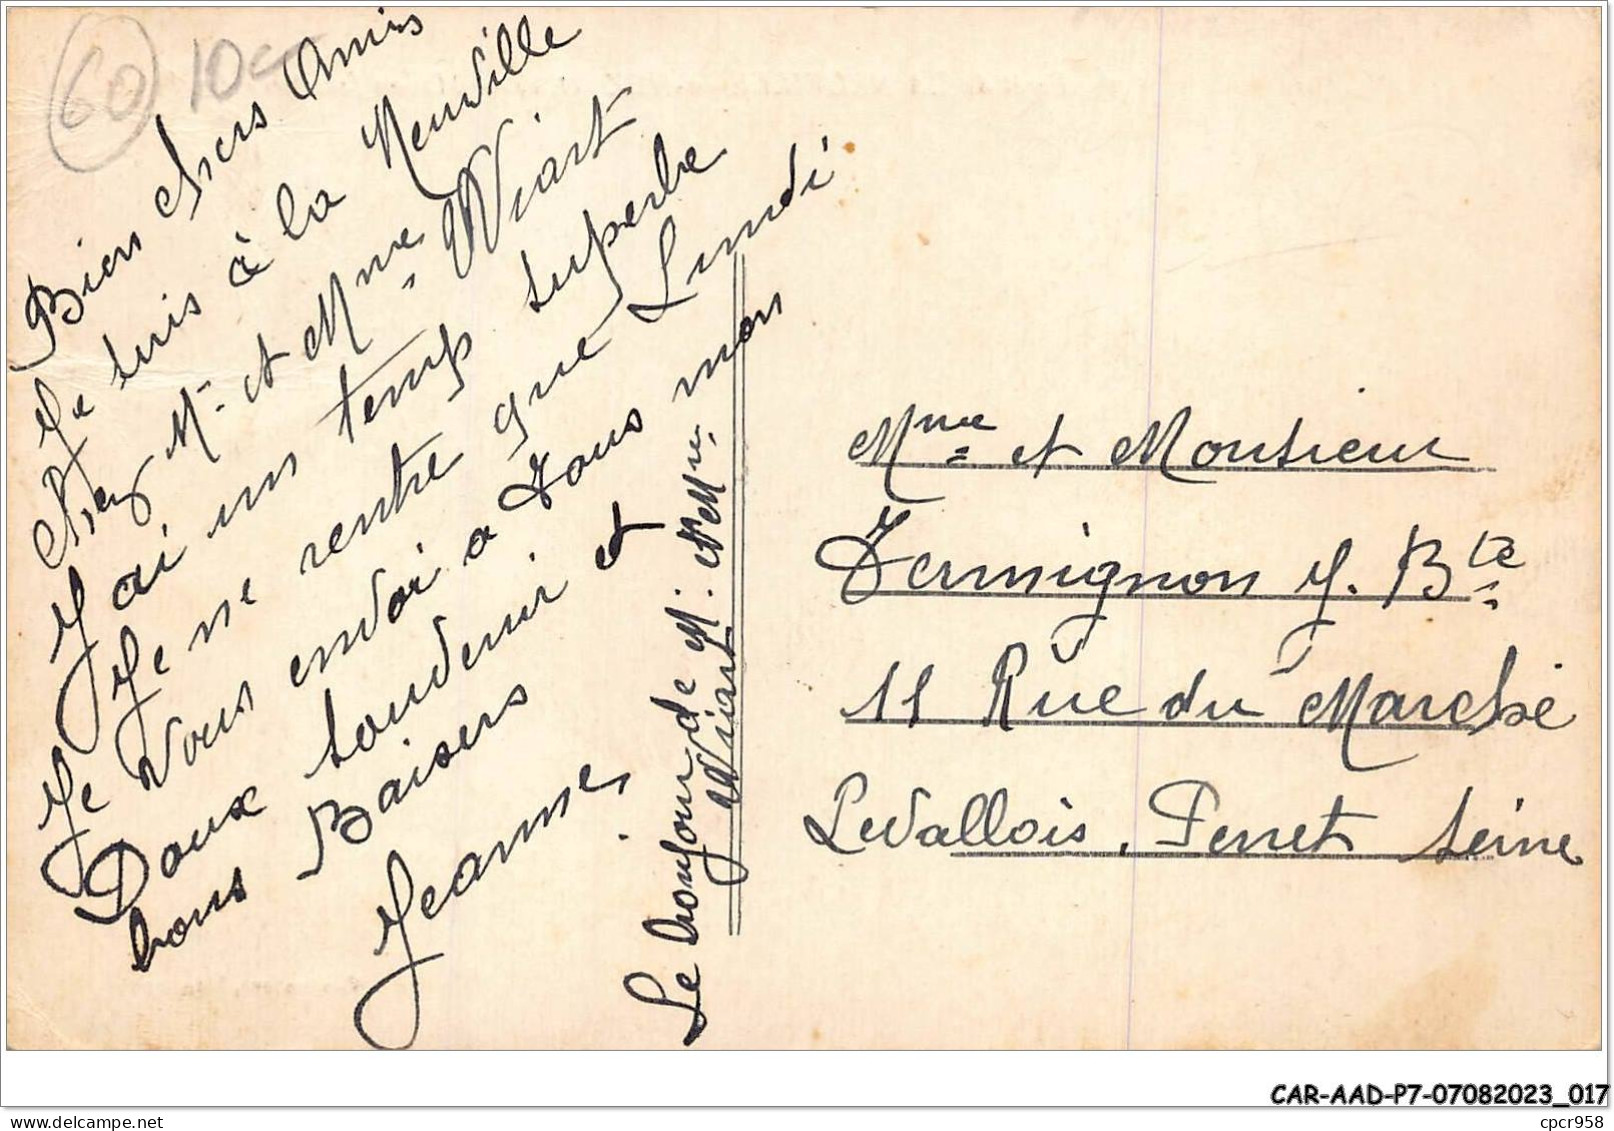 60 10
Bien chers Amis
Je suis à la Neuville
chez Mr. et Mme. Wiart
J ai un temp superbe
Je ne rentre que Lundi
Je Vous envoi a Tous mon
Doux souvenir et
bons Baisers
Jeanne.
Le bonjour de M. et Mme.
Wiart
Mme et Monsieur
Termignon J. Bte
11 Rue du Marché
Levallois. Perret Seine
CAR-AAD-P7-07082023_017
www.delcampe.net
cpcr958